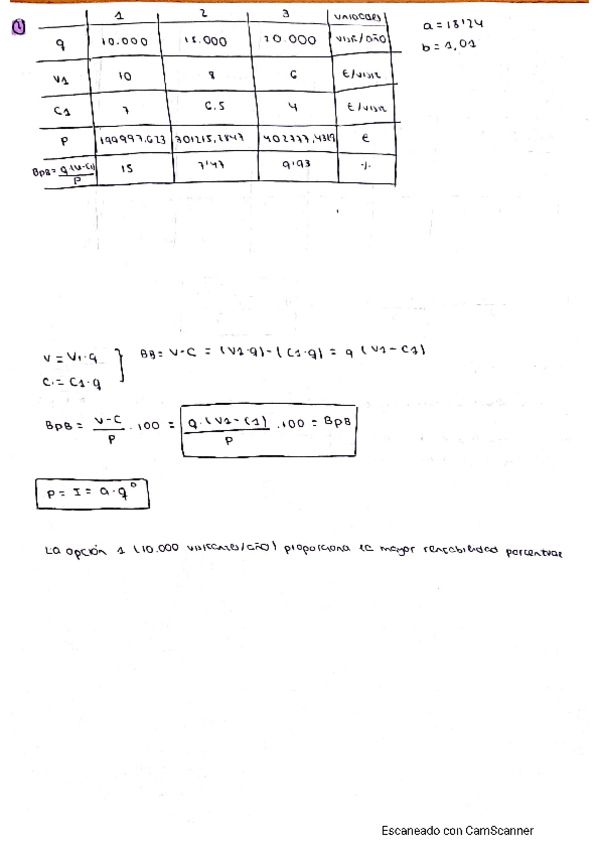 2
1 2 3 UNIDADES
q 10.000 15.000 20.000 VISIT/AÑO
V1 10 8 6 €/VISIT
C1 7 6.5 4 €/VISIT
P 199997,623 301215,2847 402777,4319 €
BPB = q(V-C)/P 15 7'47 9'93 %
a = 18'24
b = 1,01
V = V1·q
C = C1·q
BB = V-C = (V1·q)-(C1·q) = q (V1-C1)
BPB = V-C/P · 100 = q·(V1-C1)/P · 100 = BPB
P = I = a·q^b
La opción 1 (10.000 visitantes/año) proporciona la mayor rentabilidad porcentual
Escaneado con CamScanner